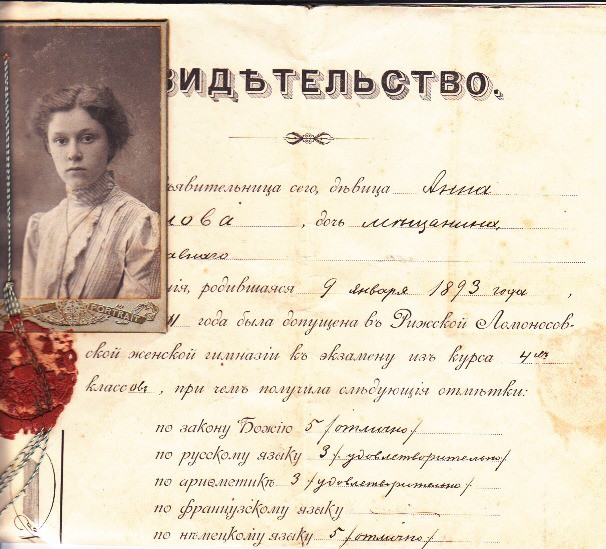 ВИДѢТЕЛЬСТВО.
PORTRAIT
ъявительница сего, дѣвица Анна
лова, дочь мѣщанина,
авнаго
нія, родившаяся 9 января 1893 года,
года была допущена въ Рижской Ломоносов-
ской женской гимназіи къ экзамену изъ курса 4хъ
классовъ, при чемъ получила слѣдующія отмѣтки:
по закону Божію 5 /отлично/
по русскому языку 3 /удовлетворительно/
по ариѳметикѣ 3 /удовлетворительно/
по французскому языку
по нѣмецкому языку 5 /отлично/